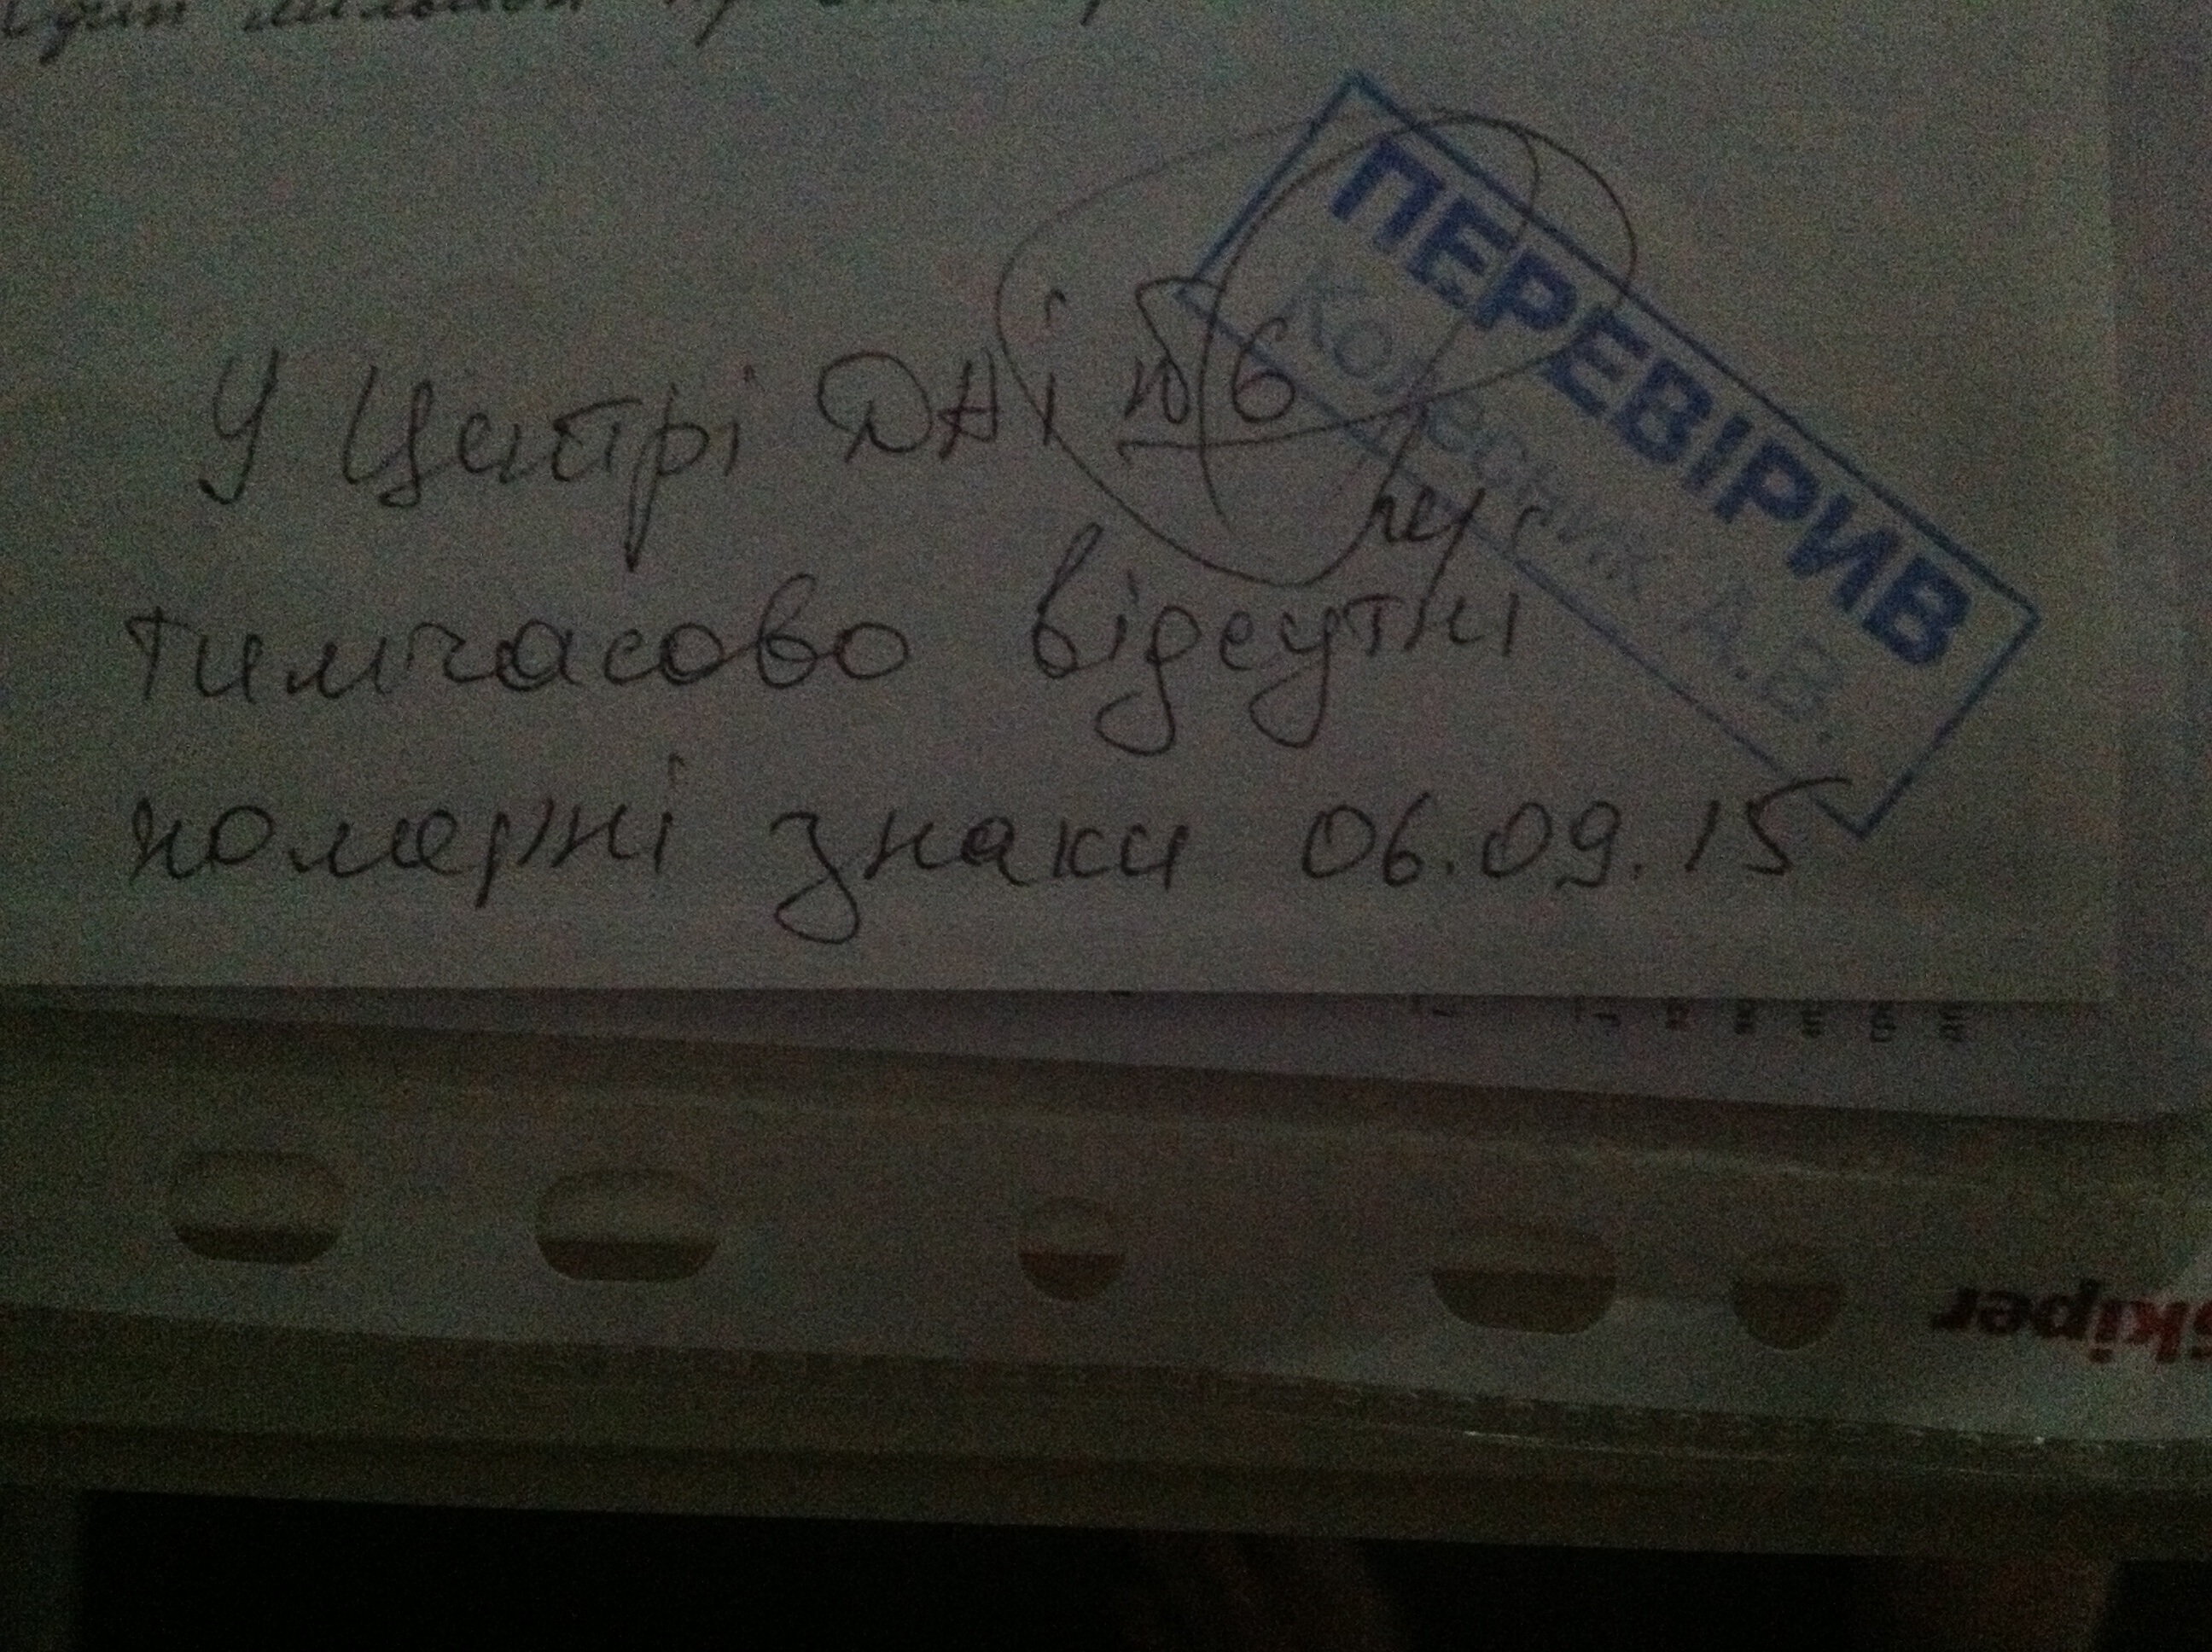 У Центрі ДАІ
тимчасово відсутні
номерні знаки 06.09.15
ПЕРЕВІРИВ
А.В.
skiper